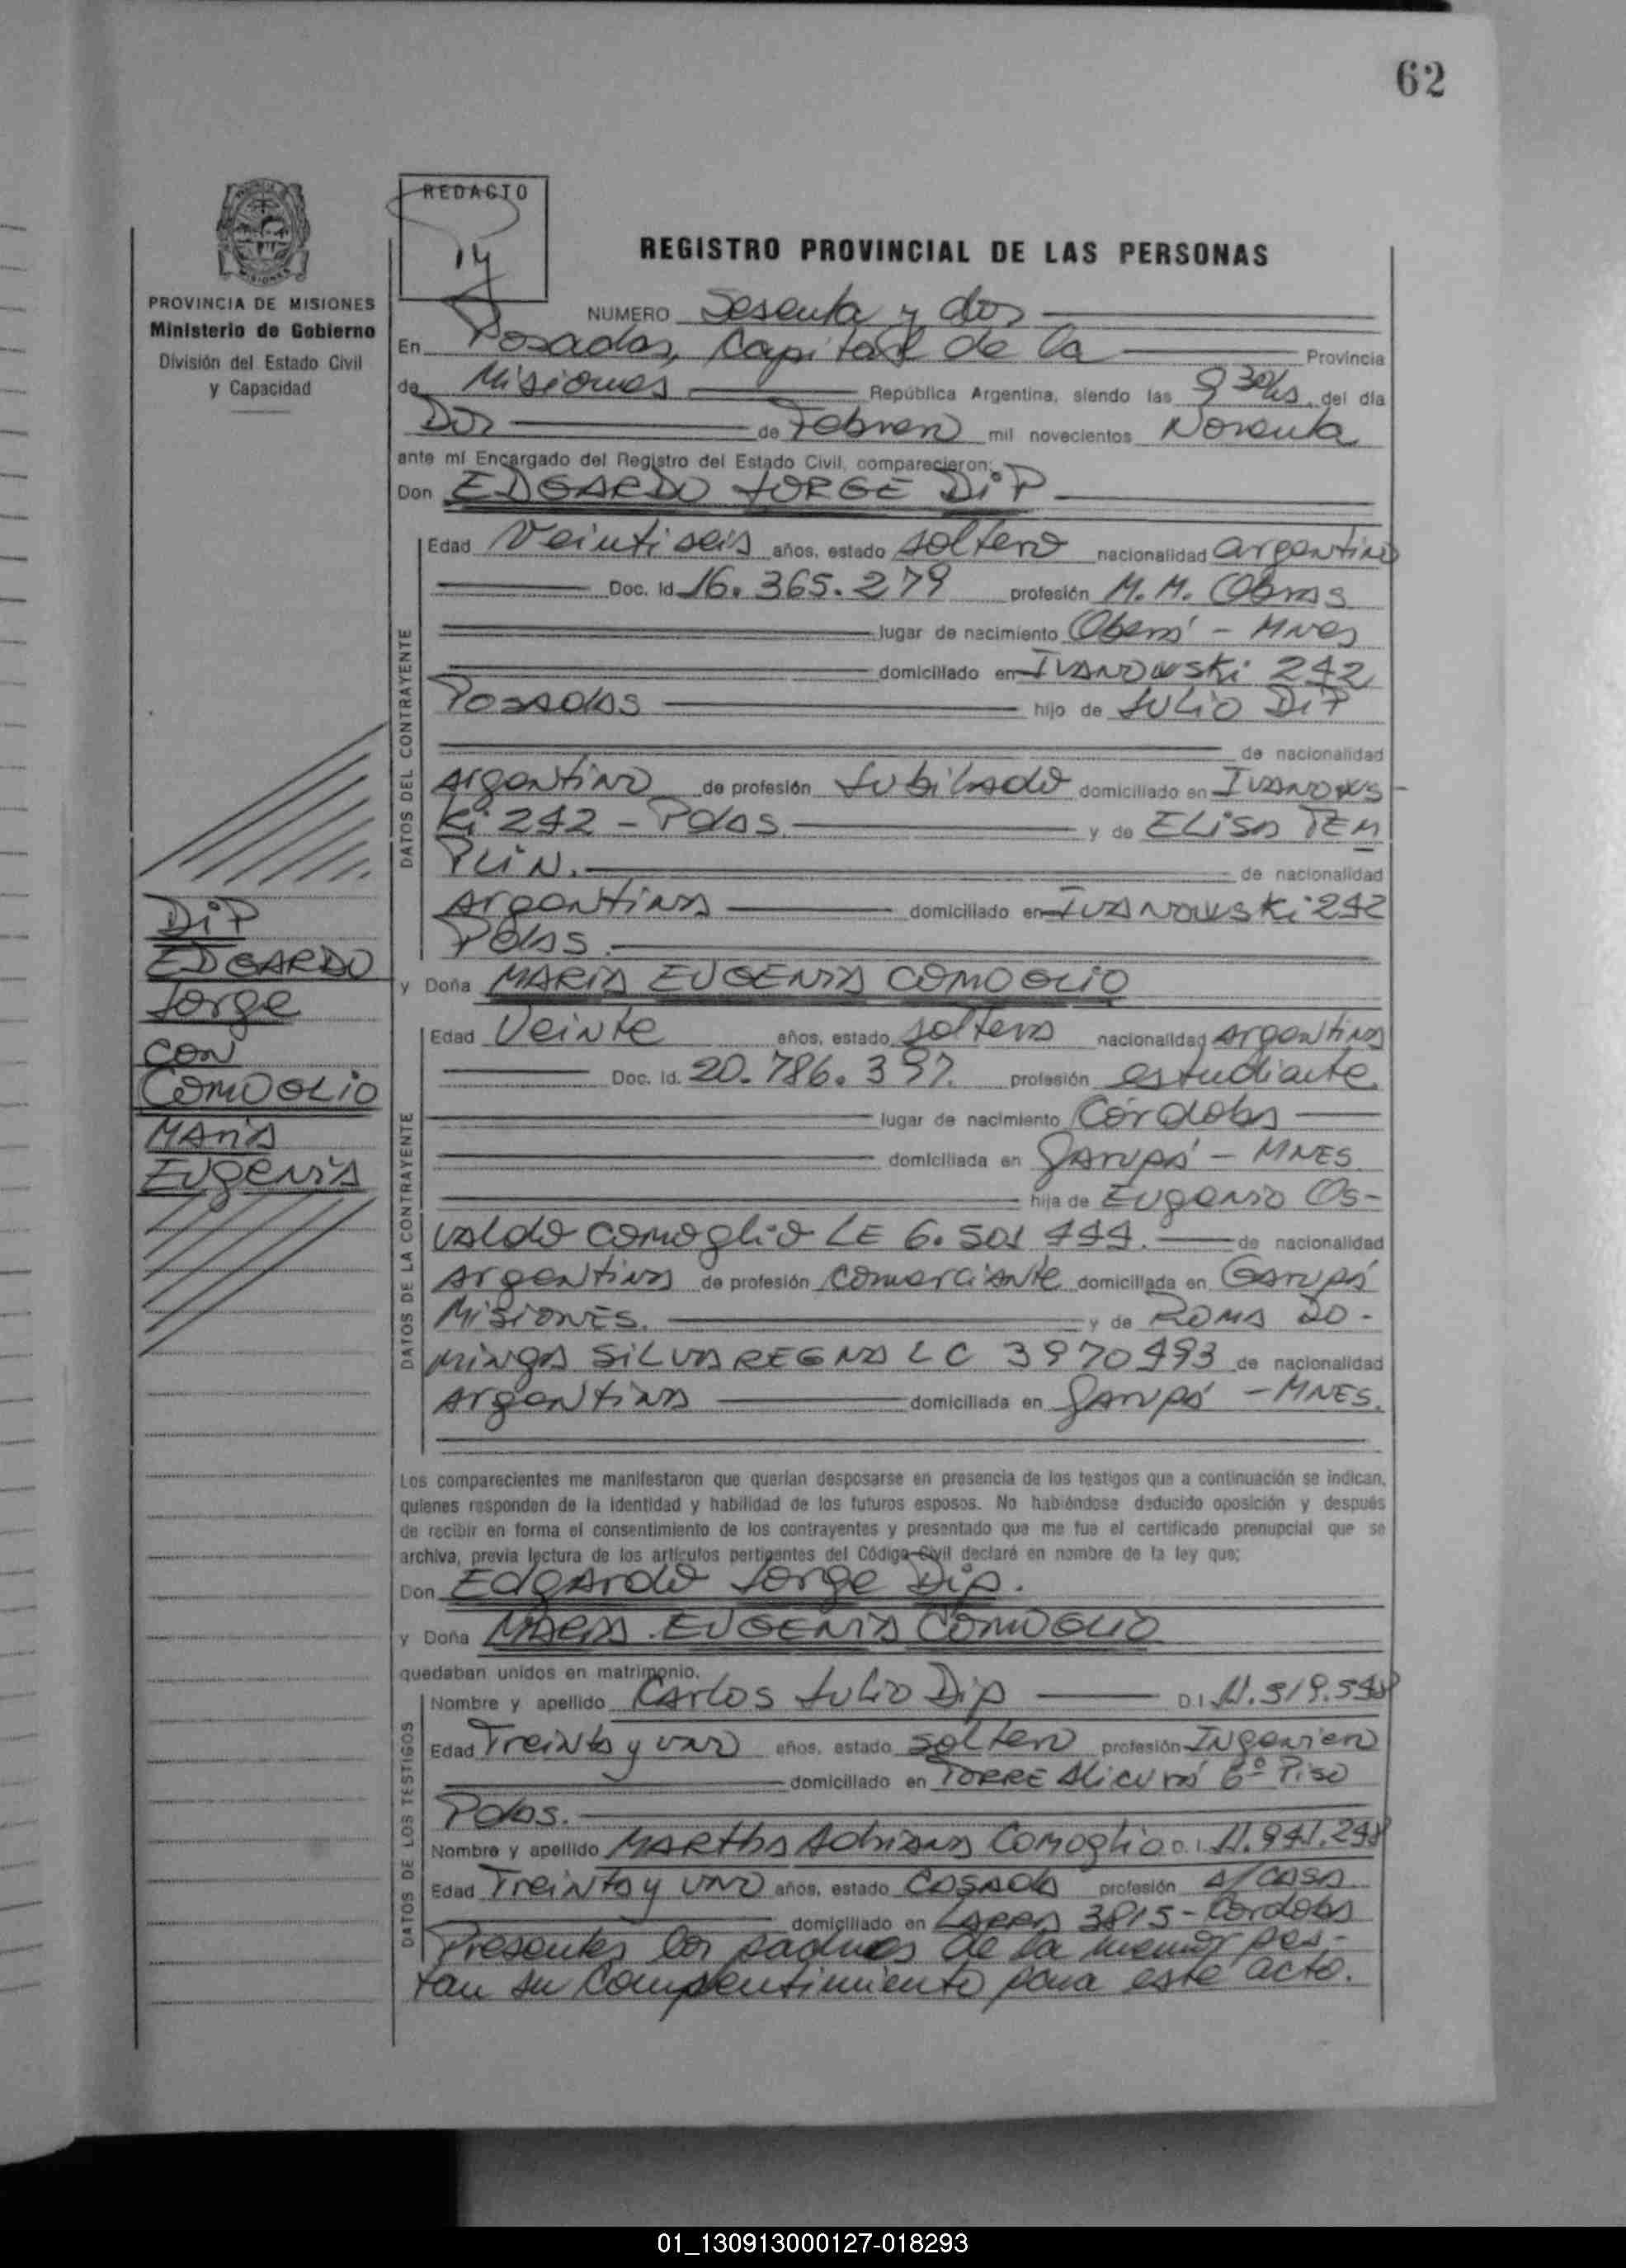 62
REDACTO
14
PROVINCIA DE MISIONES
Ministerio de Gobierno
División del Estado Civil
y Capacidad
REGISTRO PROVINCIAL DE LAS PERSONAS
NUMERO Sesenta y dos
En Posadas, Capital de la Provincia
de Misiones República Argentina, siendo las 9 30 hs. del día
Dos de Febrero mil novecientos Noventa
ante mí Encargado del Registro del Estado Civil, comparecieron:
Don EDGARDO JORGE DiP
DATOS DEL CONTRAYENTE
Edad Veintiseis años, estado soltero nacionalidad argentino
Doc. Id. 16.365.279 profesión M.M. Obras
lugar de nacimiento Oberá - Mnes
domiciliado en IVANOWSKi 242
Posadas hijo de JULiO DiP
de nacionalidad
Argentino de profesión Jubilado domiciliado en IVANOWS
Ki 242 - Pdas. y de ELiSA TEM
PLiN. de nacionalidad
Argentina domiciliado en IVANOWSKi 242
Pdas.
y Doña MARIA EUGENIA COMOGLiO
DATOS DE LA CONTRAYENTE
Edad Veinte años, estado soltera nacionalidad Argentina
Doc. Id. 20.786.397. profesión estudiante
lugar de nacimiento Córdoba
domiciliada en Garupá - MNES.
hija de Eugenio Os-
valdo Comoglio LE 6.501 444. de nacionalidad
Argentina de profesión Comerciante domiciliada en Garupá
MiSiONES. y de ROMA DO-
MiNGA SiLVA REGNA LC 3970493 de nacionalidad
Argentina domiciliada en Garupá - MNES.
DiP
EDGARDO
Jorge
CON
COMOGLiO
MARiA
EUGENiA
Los comparecientes me manifestaron que querían desposarse en presencia de los testigos que a continuación se indican,
quienes responden de la identidad y habilidad de los futuros esposos. No habiéndose deducido oposición y después
de recibir en forma el consentimiento de los contrayentes y presentado que me fue el certificado prenupcial que se
archiva, previa lectura de los artículos pertinentes del Código Civil declaré en nombre de la ley que:
Don Edgardo Jorge Dip.
y Doña MARIA EUGENIA COMOGLiO
quedaban unidos en matrimonio.
DATOS DE LOS TESTIGOS
Nombre y apellido Carlos Julio Dip D.I. 11.519.548
Edad Treinta y uno años, estado soltero profesión Ingeniero
domiciliado en TORRE Alicurá 6º Piso
Pdas.
Nombre y apellido MARTHA Adriana Comoglio D.I. 11.941.248
Edad Treinta y uno años, estado Casada profesión A/CASA
domiciliado en 3815 - Córdoba
Presentes los padres de la menor pres-
tan su Compsentimiento para este acto.
01_130913000127-018293